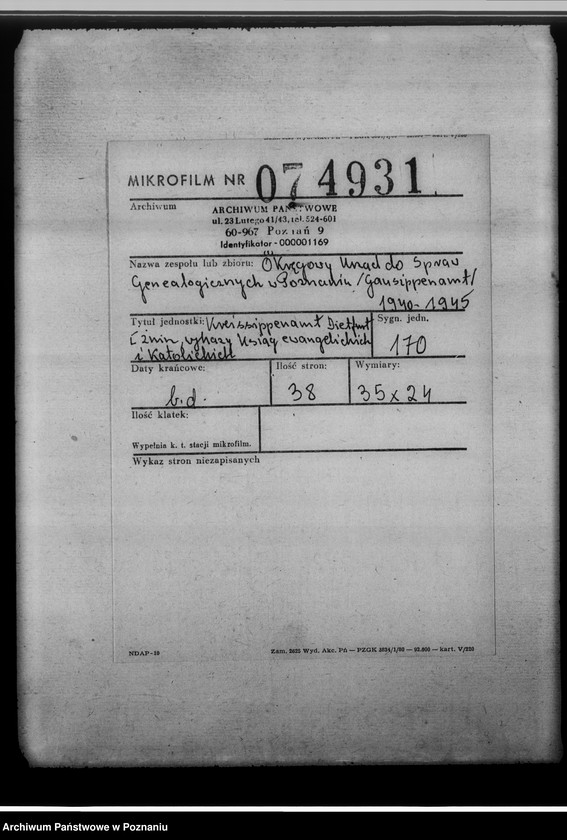 MIKROFILM NR 074931
Archiwum
ARCHIWUM PAŃSTWOWE
ul. 23 Lutego 41/43, tel. 524-601
60-967 Poznań 9
Identyfikator - 000001169
Nazwa zespołu lub zbioru: Okręgowy Urząd do Spraw
Genealogicznych w Poznaniu /Gausippenamt/
1940-1945
Tytuł jednostki: Kreissippenamt Dietfurt
Żnin, wykazy ksiąg ewangelickich
i Katolickich
Sygn. jedn.
170
Daty krańcowe:
b.d.
Ilość stron:
38
Wymiary:
35x24
Ilość klatek:
Wypełnia k. t. stacji mikrofilm.
Wykaz stron niezapisanych
NDAP-19
Zam. 2625 Wyd. Akc. Pń — PZGK — kart. V/220
Archiwum Państwowe w Poznaniu